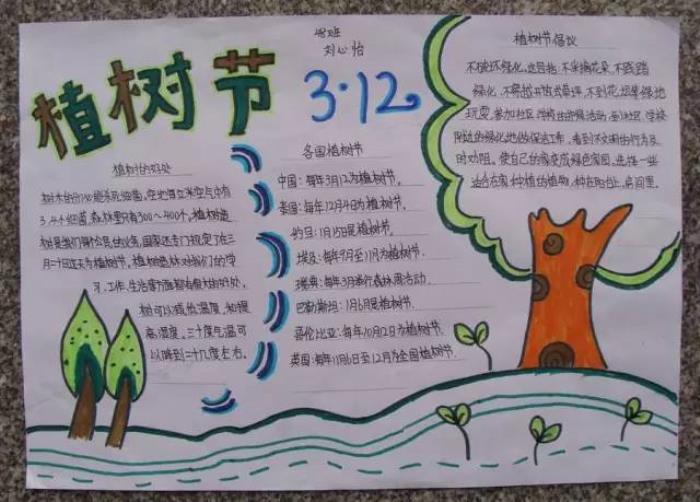 植树节
3·12
四班
刘心怡
植树的好处
树木的分泌能杀死细菌,空地每立米空气中有
3、4个细菌,森林里只有300~400个,植树造
树是我们每个公民的义务,国家还专门规定了在三
月十二日这天为植树节,植树造林对我们的学
习、工作、生活等方面都有着大的好处,
树可以减低温度,和提
高湿度,三十度气温可
以降到二十几度左右。
各国植树节
中国:每年3月12为植树节。
泰国:每年12月4日为植树节。
约旦:1月15日是植树节。
埃及:每年9月至11月为植树节。
瑞典:每年3月举行森林周活动
巴勒斯坦:1月6是植树节。
哥伦比亚:每年10月2日为植树节。
英国:每年11月6日至12月为全国植树节.
植树节倡议
不破坏绿化,这包括:不采摘花朵,不践踏
绿化,不将垃圾草坪,不到花坛等绿地
玩耍,参加社区学校的环保活动,到社区、学校
附近的绿化地做保洁工作,看到不文明的行为及
时劝阻,使自己的家变成绿色家园,选择一些
适合在家种植的植物,种在阳台上、房间里。